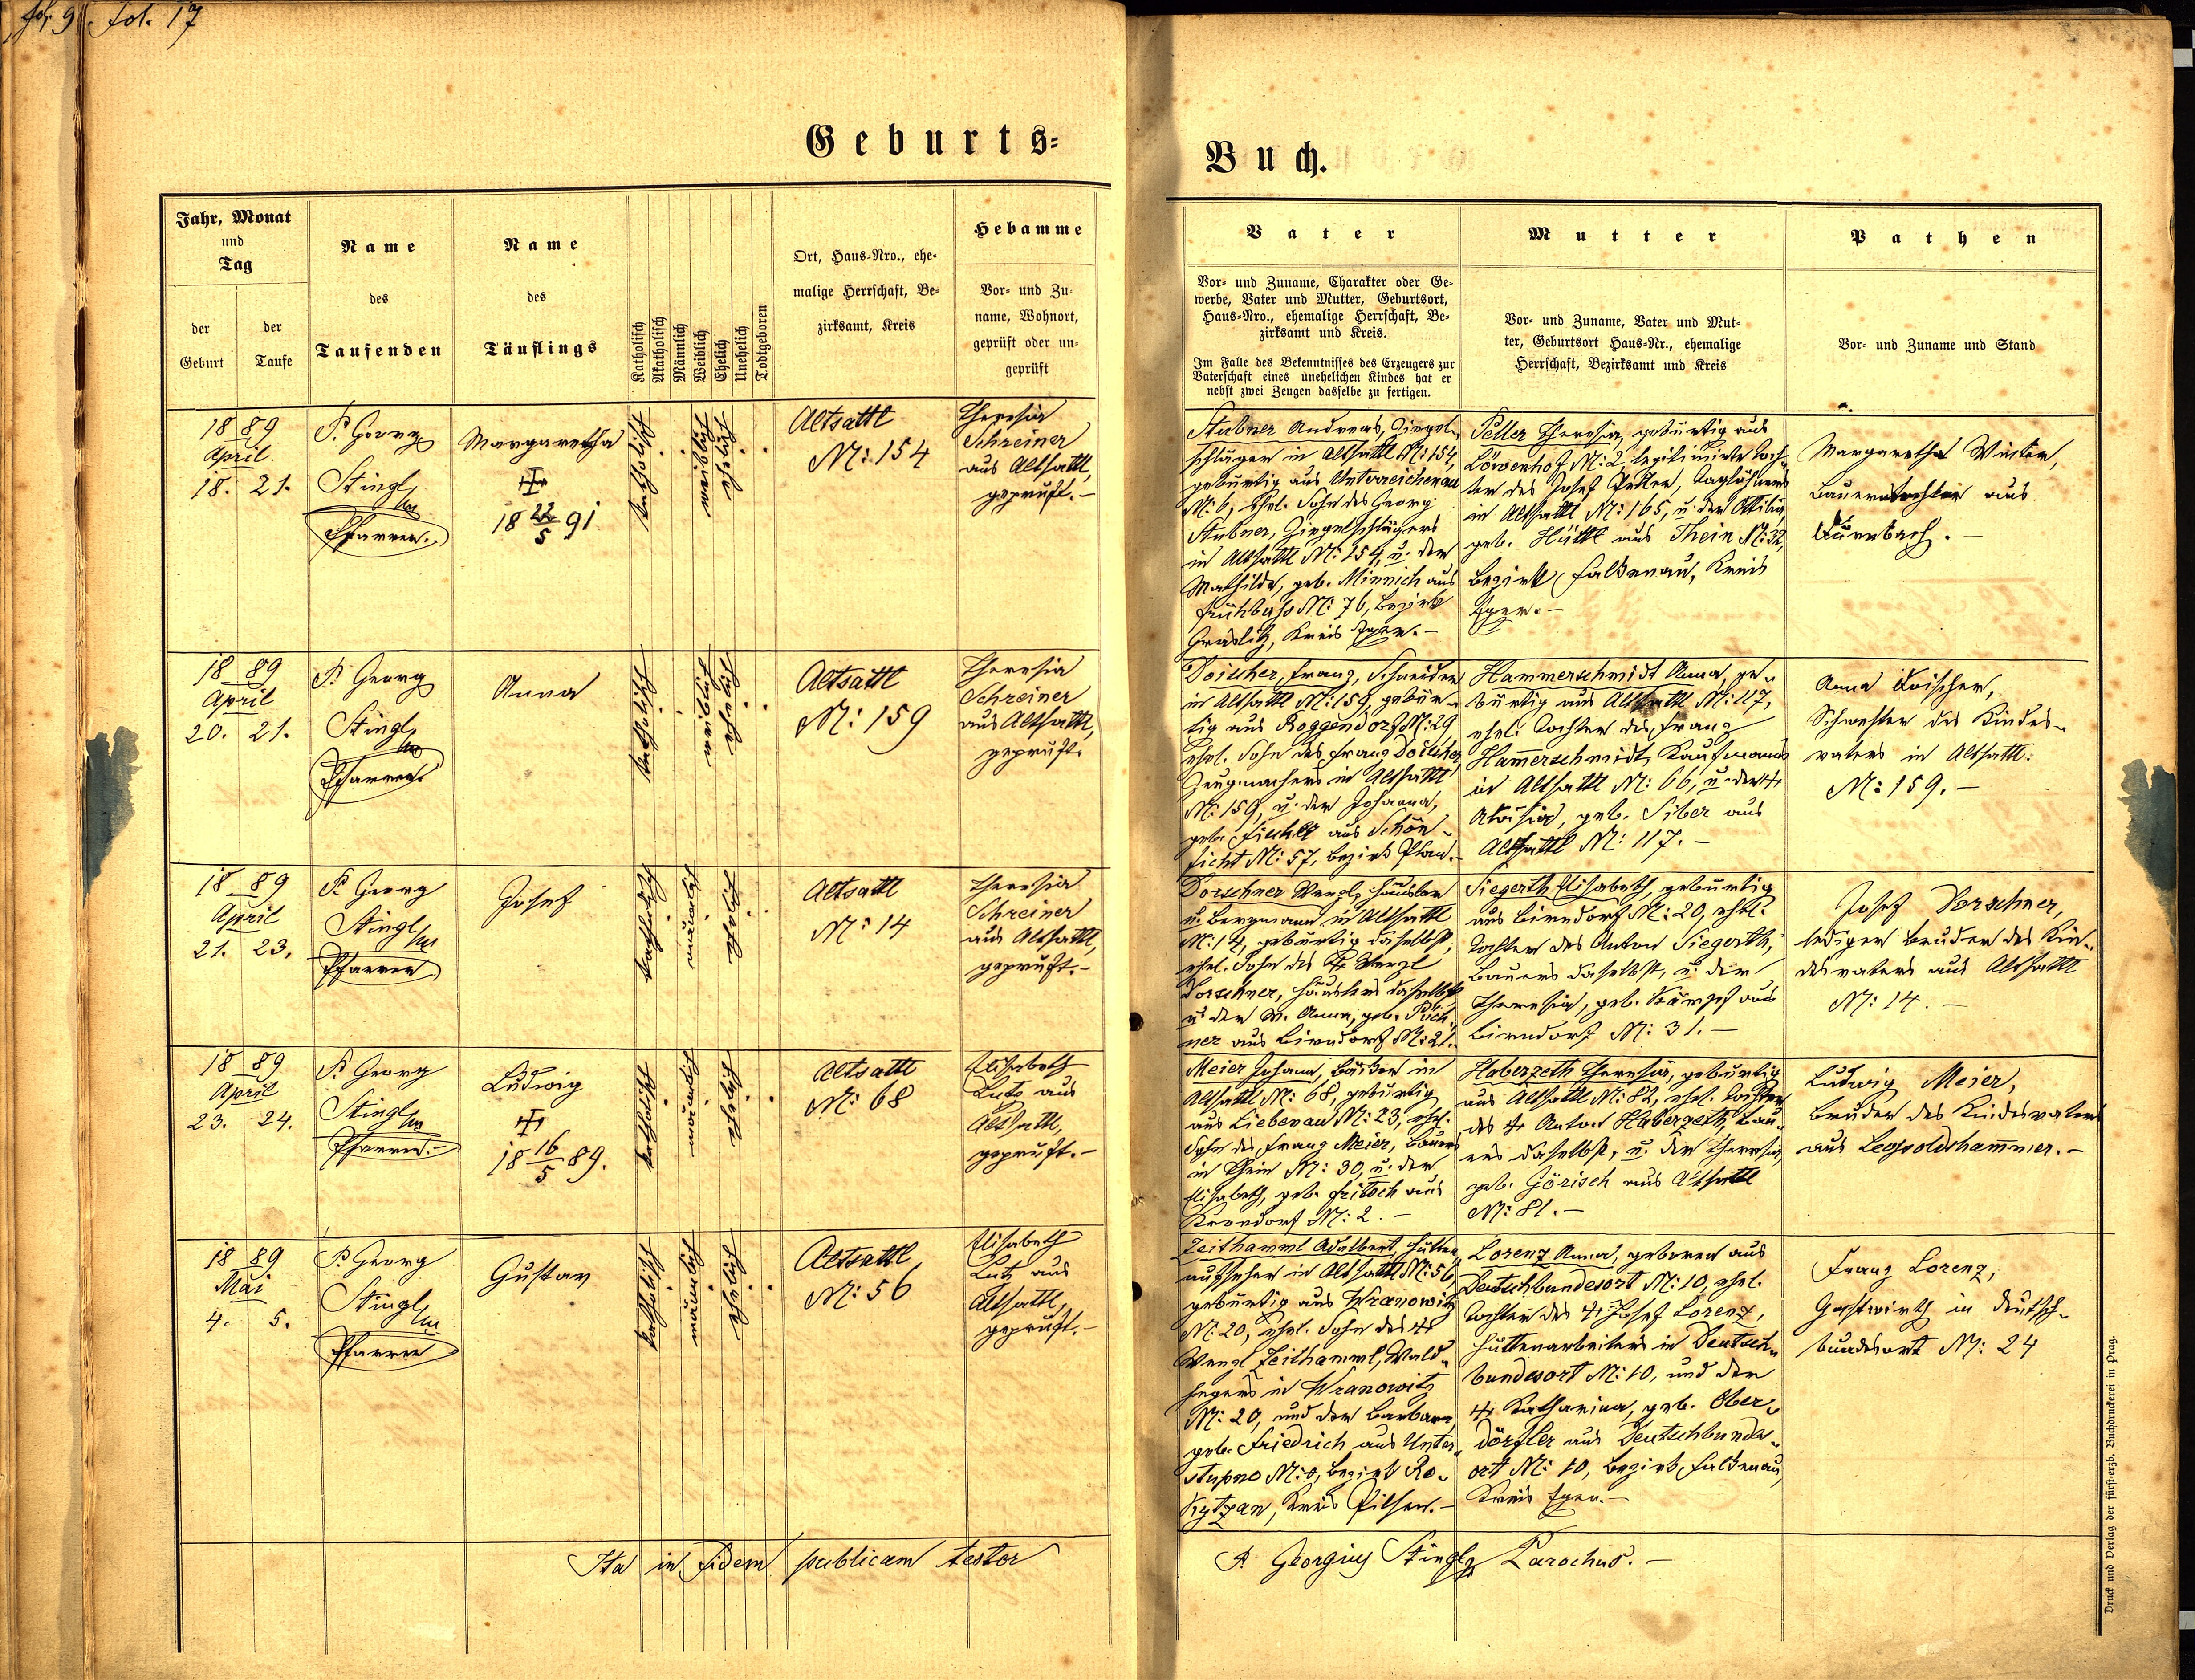 fol. 9 fol. 17
Geburts-
Buch.
Jahr, Monat
und
Tag
der
Geburt
der
Taufe
Name
des
Taufenden
Name
des
Täuflings
Katholisch
Akatholisch
Männlich
Weiblich
Ehelich
Unehelich
Todtgeboren
Ort, Haus-Nro., ehe-
malige Herrschaft, Be-
zirksamt, Kreis
Hebamme
Vor- und Zu-
name, Wohnort,
geprüft oder un-
geprüft
Vater
Vor- und Zuname, Charakter oder Ge-
werbe, Vater und Mutter, Geburtsort,
Haus-Nro., ehemalige Herrschaft, Be-
zirksamt und Kreis.
Im Falle des Bekenntnisses des Erzeugers zur
Vaterschaft eines unehelichen Kindes hat er
nebst zwei Zeugen dasselbe zu fertigen.
Mutter
Vor- und Zuname, Vater und Mut-
ter, Geburtsort Haus-Nr., ehemalige
Herrschaft, Bezirksamt und Kreis
Pathen
Vor- und Zuname und Stand
18 89
April.
18. 21.
P. Georg
Stingl
Pfarrer.
Margaretha
18 22/5 91
katholisch
weiblich
ehelich
Altsattl
N: 154
Theresia
Schreiner
aus Altsattl,
geprüft.-
Stubner Andreas, Ziegel-
schläger in Altsattl N: 154,
gebürtig aus Unterreichenau
N: 6, ehel. Sohn des Georg
Stubner, Ziegelschlägers
in Altsattl N: 154, u. der
Mathilda, geb. Minnich aus
Frühbuss N: 76, Bezirk
Graslitz, Kreis Eger.-
Peller Theresia, gebürtig aus
Löwenhof N: 2, legitimirte Toch-
ter des Josef Peller, Taglöhners
in Altsattl N: 165, u. der Ottilia
geb. Hüttl aus Thein N: 32,
Bezirk Falkenau, Kreis
Eger.-
Margaretha
Bauerntochter aus
18 89
April
20. 21.
P. Georg
Stingl
Pfarrer
Anna
katholisch
weiblich
ehelich
Altsattl
N: 159
Theresia
Schreiner
aus Altsattl,
geprüft.
Doischer, Franz, Schneider
in Altsattl N: 159, gebür-
tig aus Roggendorf N: 29,
ehel. Sohn des Franz Doischer,
Zeugmachers in Altsattl
N: 159, u. der Johanna,
geb. aus Schön-
ficht N: 57, Bezirk Plan.-
Hammerschmidt Anna, ge-
bürtig aus Altsattl N: 117,
ehel. Tochter des Franz
Hammerschmidt, Kaufmanns
in Altsattl N: 66, u. der
Aloisia, geb. Siber aus
Altsattl N: 117.-
Anna Doischer,
Schwester des Kindes-
vaters in Altsattl.
N: 159.-
18 89
April
21. 23.
P. Georg
Stingl
Pfarrer
Josef
katholisch
männlich
ehelich
Altsattl
N: 14
Theresia
Schreiner
aus Altsattl,
geprüft.-
Dorschner Wenzl, Häusler
u. Bergmann in Altsattl
N: 14, gebürtig daselbst,
ehel. Sohn des Wenzl
Dorschner, Häuslers daselbst
u. der Anna, geb. Pöch-
ner aus Birndorf N: 21.
Siegerth Elisabeth, gebürtig
aus Birndorf N: 20, ehel.
Tochter des Anton Siegerth,
Bauers daselbst, u. der
Theresia, geb. Kämpf aus
Birndorf N: 31.-
Josef Dorschner,
lediger Bruder des Kin-
desvaters aus Altsattl
N: 14.-
18 89
April
23. 24.
P. Georg
Stingl
Pfarrer.-
Ludwig
18 16/5 89.
katholisch
männlich
ehelich
Altsattl
N: 68
Elisabeth
Lutz aus
Altsattl,
geprüft.-
Meier Johann, Bäcker in
Altsattl N: 68, gebürtig
aus Liebenau N: 23, ehel.
Sohn des Franz Meier, Bauers
in Thein N: 30, u. der
Elisabeth, geb. Fritsch aus
Krondorf N: 2.-
Haberzeth Theresia, gebürtig
aus Altsattl N: 82, ehel. Tochter
des Anton Haberzeth, Bau-
ers daselbst, u. der Theresia,
geb. Görisch aus Altsattl
N: 81.-
Ludwig Meier,
Bruder des Kindesvaters
aus Leopoldshammer.-
18 89
Mai
4. 5.
P. Georg
Stingl
Pfarrer
Gustav
katholisch
männlich
ehelich
Altsattl
N: 56
Elisabeth
Lutz aus
Altsattl,
geprüft.-
Zeithamml Adalbert, Hütten-
aufseher in Altsattl N: 56,
gebürtig aus Wranowitz
N: 20, ehel. Sohn des
Wenzl Zeithamml, Wald-
hegers in Wranowitz
N: 20, und der Barbara,
geb. Friedrich aus Unter-
stupno N: 8, Bezirk Ro-
kytzan, Kreis Pilsen.-
Lorenz Anna, geboren aus
Deutschbundesort N: 10, ehel.
Tochter des Josef Lorenz,
Hüttenarbeiters in Deutsch-
bundesort N: 10, und der
Katharina, geb. Ober-
dörfler aus Deutschbundes-
ort N: 10, Bezirk Falkenau,
Kreis Eger.-
Franz Lorenz,
Gastwirth in Deutsch-
bundesort N: 24
Ita in fidem publicam testor
P. Georgius Stingl, Parochus.-
Druck und Verlag der fürst-erzb. Buchdruckerei in Prag.